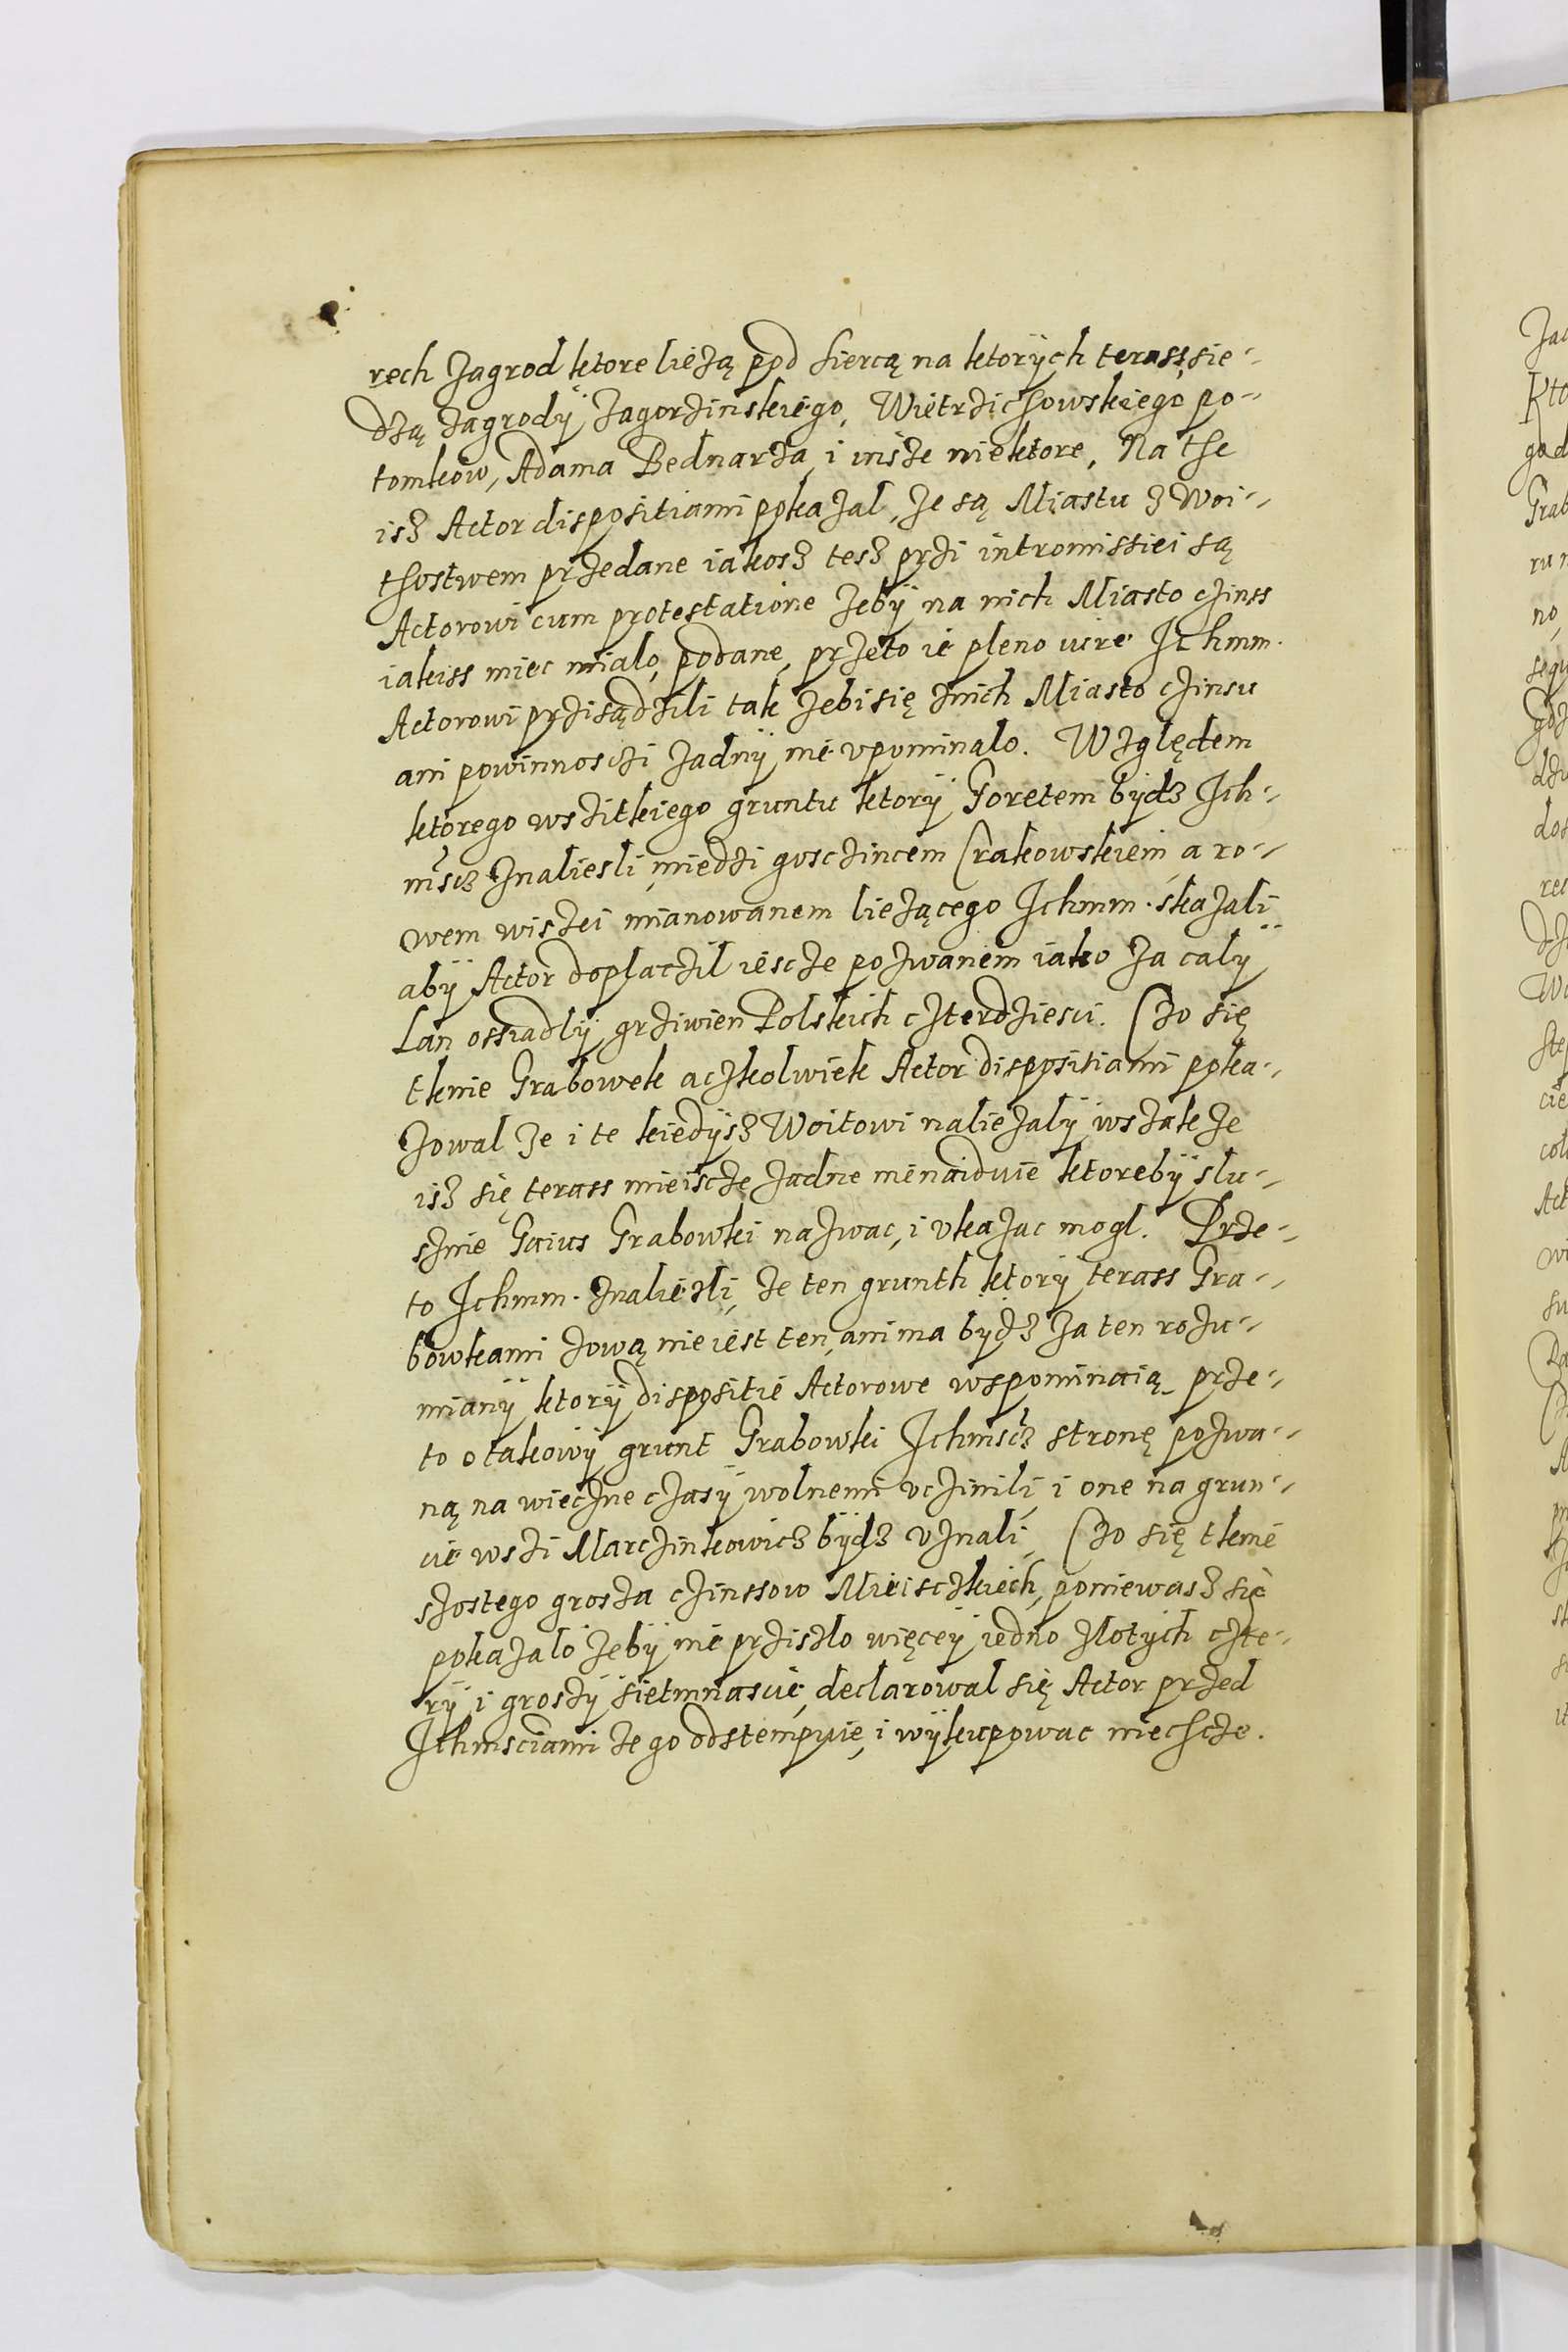 rech zagrod ktore lieżą pod Siercą na ktorÿch terass sie-
dzą zagrodÿ Zagorzinskiego, Wietrzichowskiego po-
tomkow, Adama Bednarza i insze niektore, Na the
isz Actor dispositiami pokazal, że są Miastu z Woi-
thostwem przedane iakosz tesz przi intromissiei są
Actorowi cum protestatione żebÿ na nich Miasto czinss
iakiss miec mialo, podane, przeto ie pleno iure Ichmm.
Actorowi przisądzili tak żebi się znich Miasto czinsu
ani powinnosczi żadnÿ nie vpominalo. Względem
ktorego wszitkiego gruntu ktorÿ Foretem bÿdz Ich-
mscz znaliesli, miedzi gosczincem Crakowskiem, a ro-
wem wiszei mianowanem lieżącego Ichmm. skazali
abÿ Actor doplaczil iescze pozwanem iako za calÿ
Lan ossiadlÿ grziwien Polskich czterdziesci. Czo się
tknie Grabowek aczkolwiek Actor dispositiami poka-
zowal że i te kiedÿsz Woitowi nalieżalÿ wszakże
isz się terass mieiscze żadne nienaiduie ktorebÿ slu-
sznie Gaius Grabowki nazwac, i vkazac mogl. Prze-
to Ichmm. znaliezli, że ten grunth ktorÿ terass Gra-
bowkami zową nieiest ten, ani ma bÿdz za ten rozu-
mianÿ ktorÿ dispositie Actorowe wspominaią, prze-
to o takowÿ grunt Grabowki Ichmscz stronę pozwa-
ną na wieczne czasÿ wolnemi vczinili, i one na grun-
cie wszi Marczinkowicz bÿdz vznali, Czo się tknie
szostego grosza czinssow Mieisczkiech, poniewasz się
pokazalo żebÿ nie prziszlo więcéÿ iedno zlotÿch czte-
rÿ i groszÿ sietmnascie, declarowal się Actor przed
Ichmsciami że go odstempuie, i wÿkupowac niechcze.